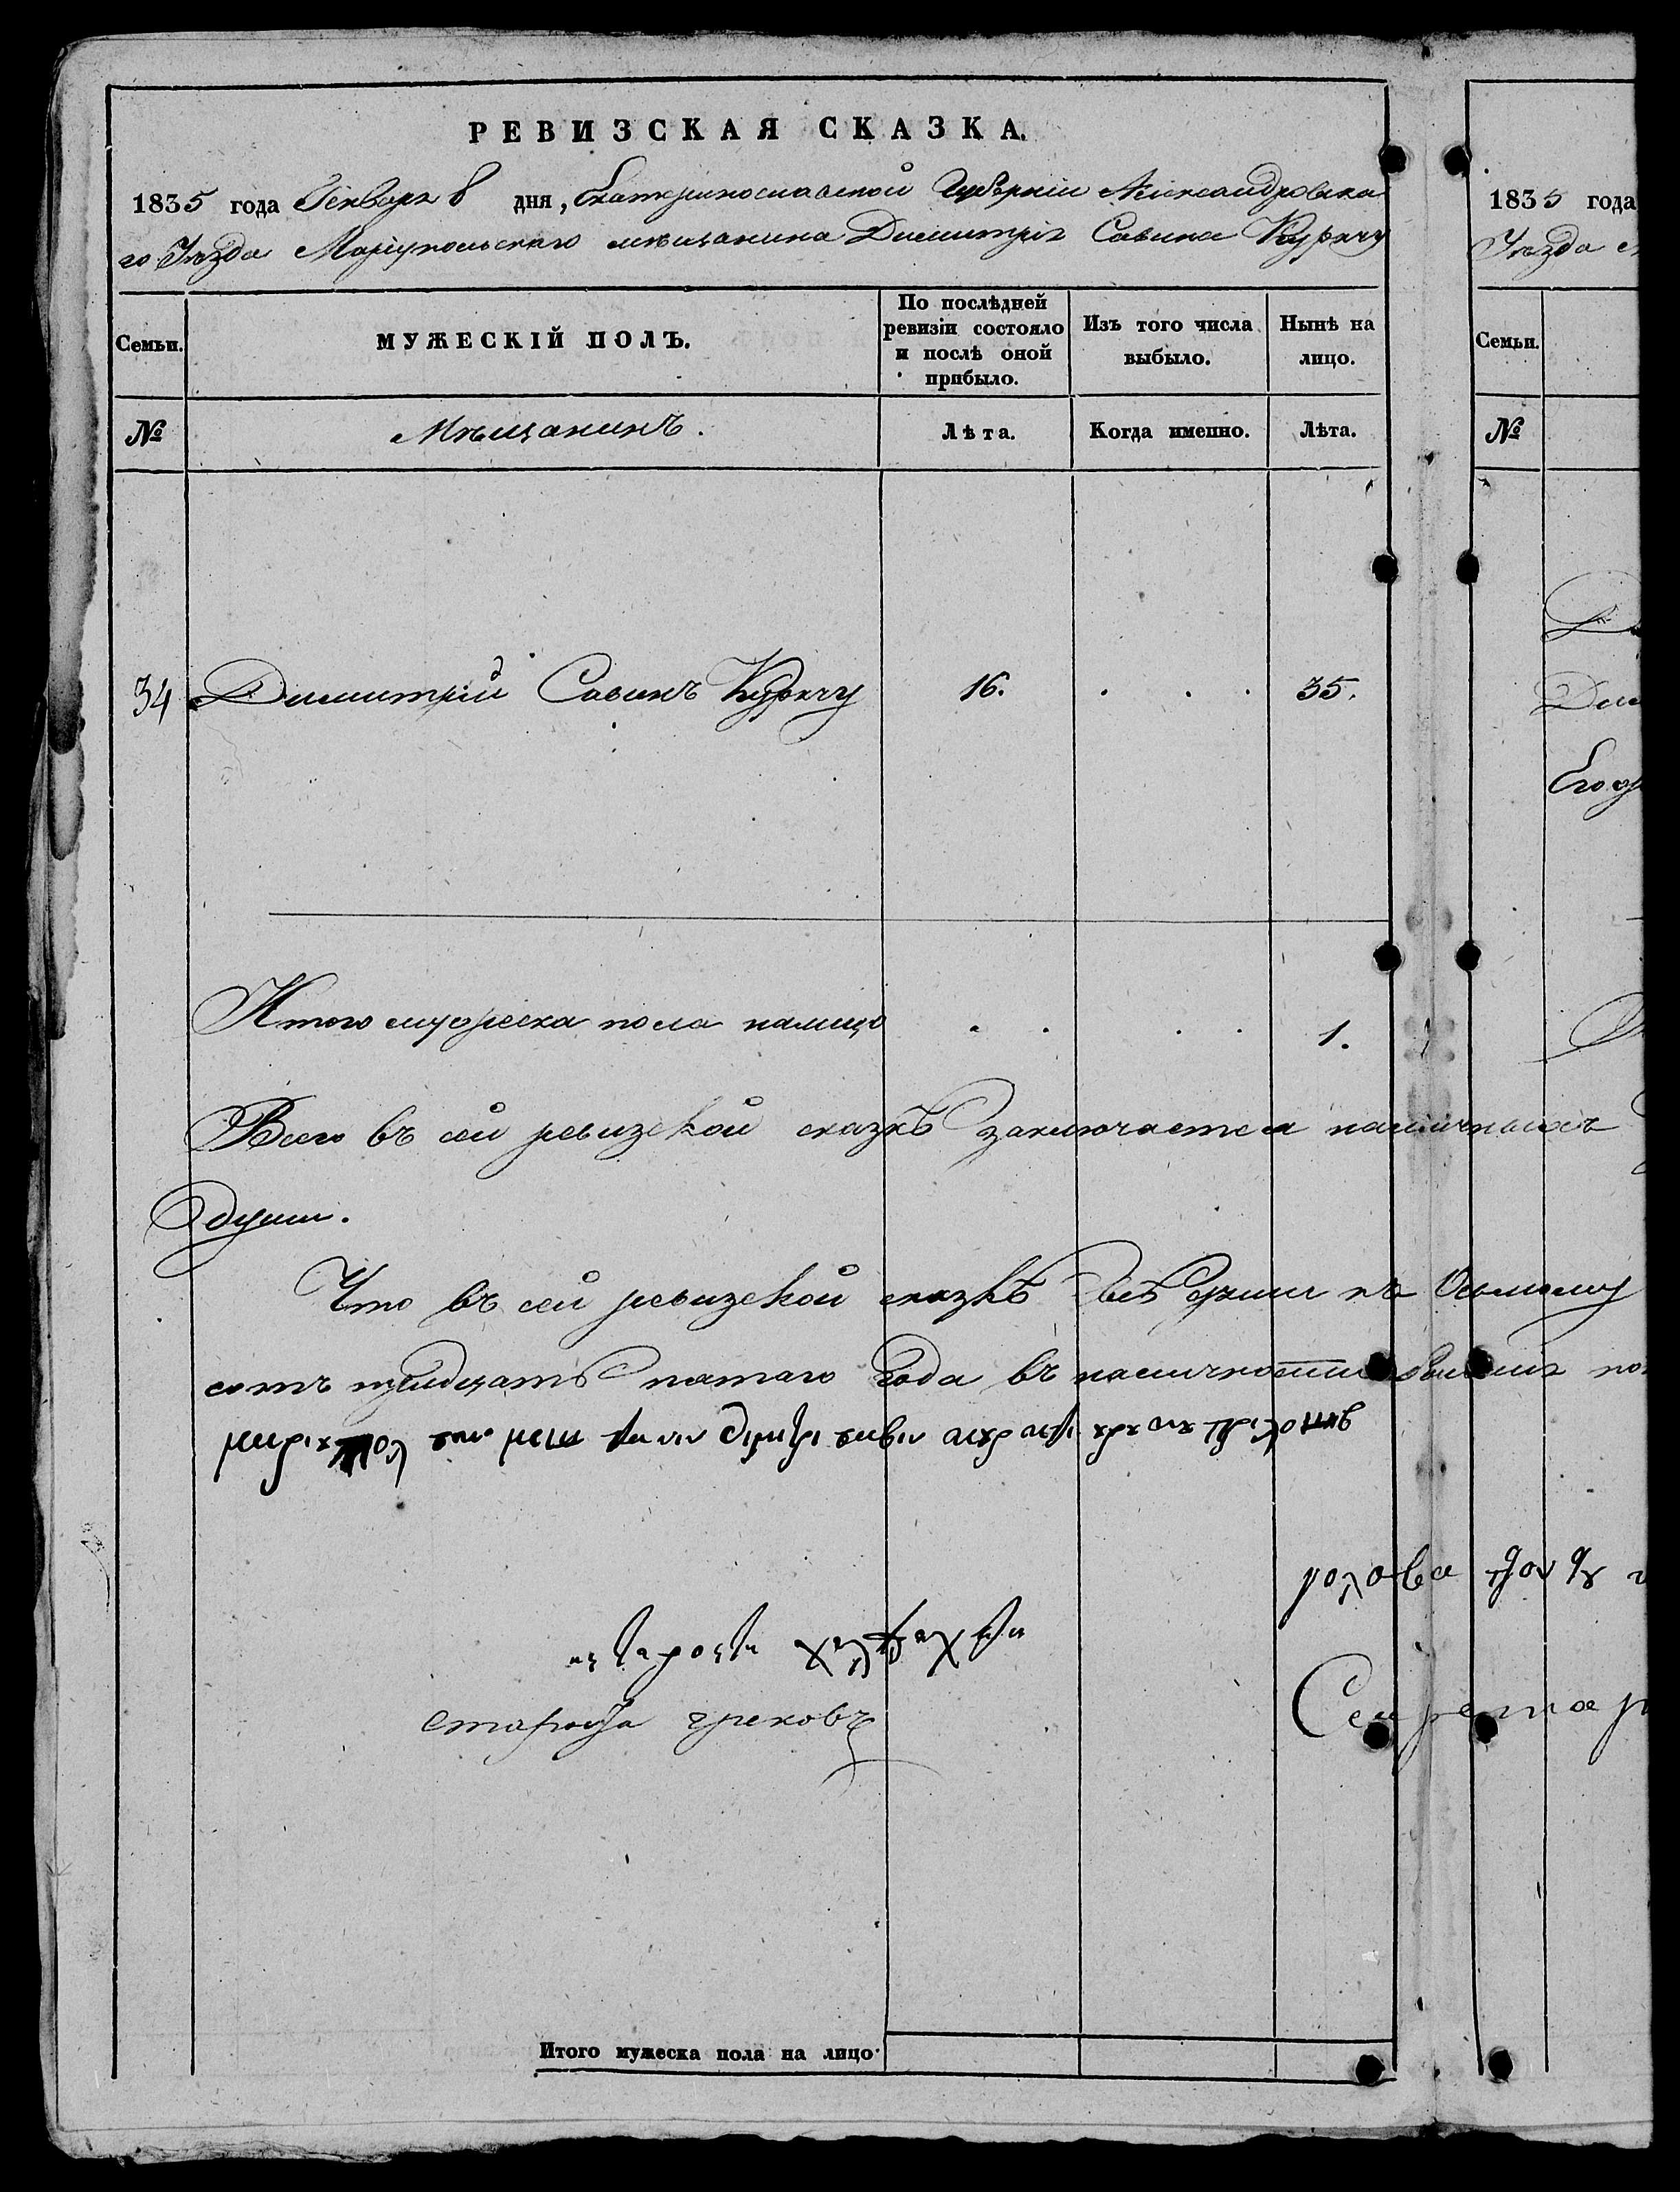 РЕВИЗСКАЯ СКАЗКА.
1835 года Генваря 8 дня, Екатеринославской Губерніи Александровска
го Уѣзда Маріупольскаго мѣщанина Димитрія Савина Куркчу
Семьи.
МУЖЕСКІЙ ПОЛЪ.
По послѣдней ревизіи состояло и послѣ оной прибыло.
Изъ того числа выбыло.
Нынѣ на лицо.
№
Мѣщанинъ.
Лѣта.
Когда именно.
Лѣта.
34 Димитрій Савинъ Куркчу 16. . . . 35.
Итого мужеска пола налицо . . . . 1.
Всего въ сей ревизской сказкѣ заключается наличныхъ
души.
Что въ сей ревизской сказкѣ всѣ души къ Осьмому
сотъ тридцать пятаго года въ наличности бывшія
голова
староста грековъ
Секретар
Итого мужеска пола на лицо
1835 года
Уѣзда
Семьи.
№
Дим
Его